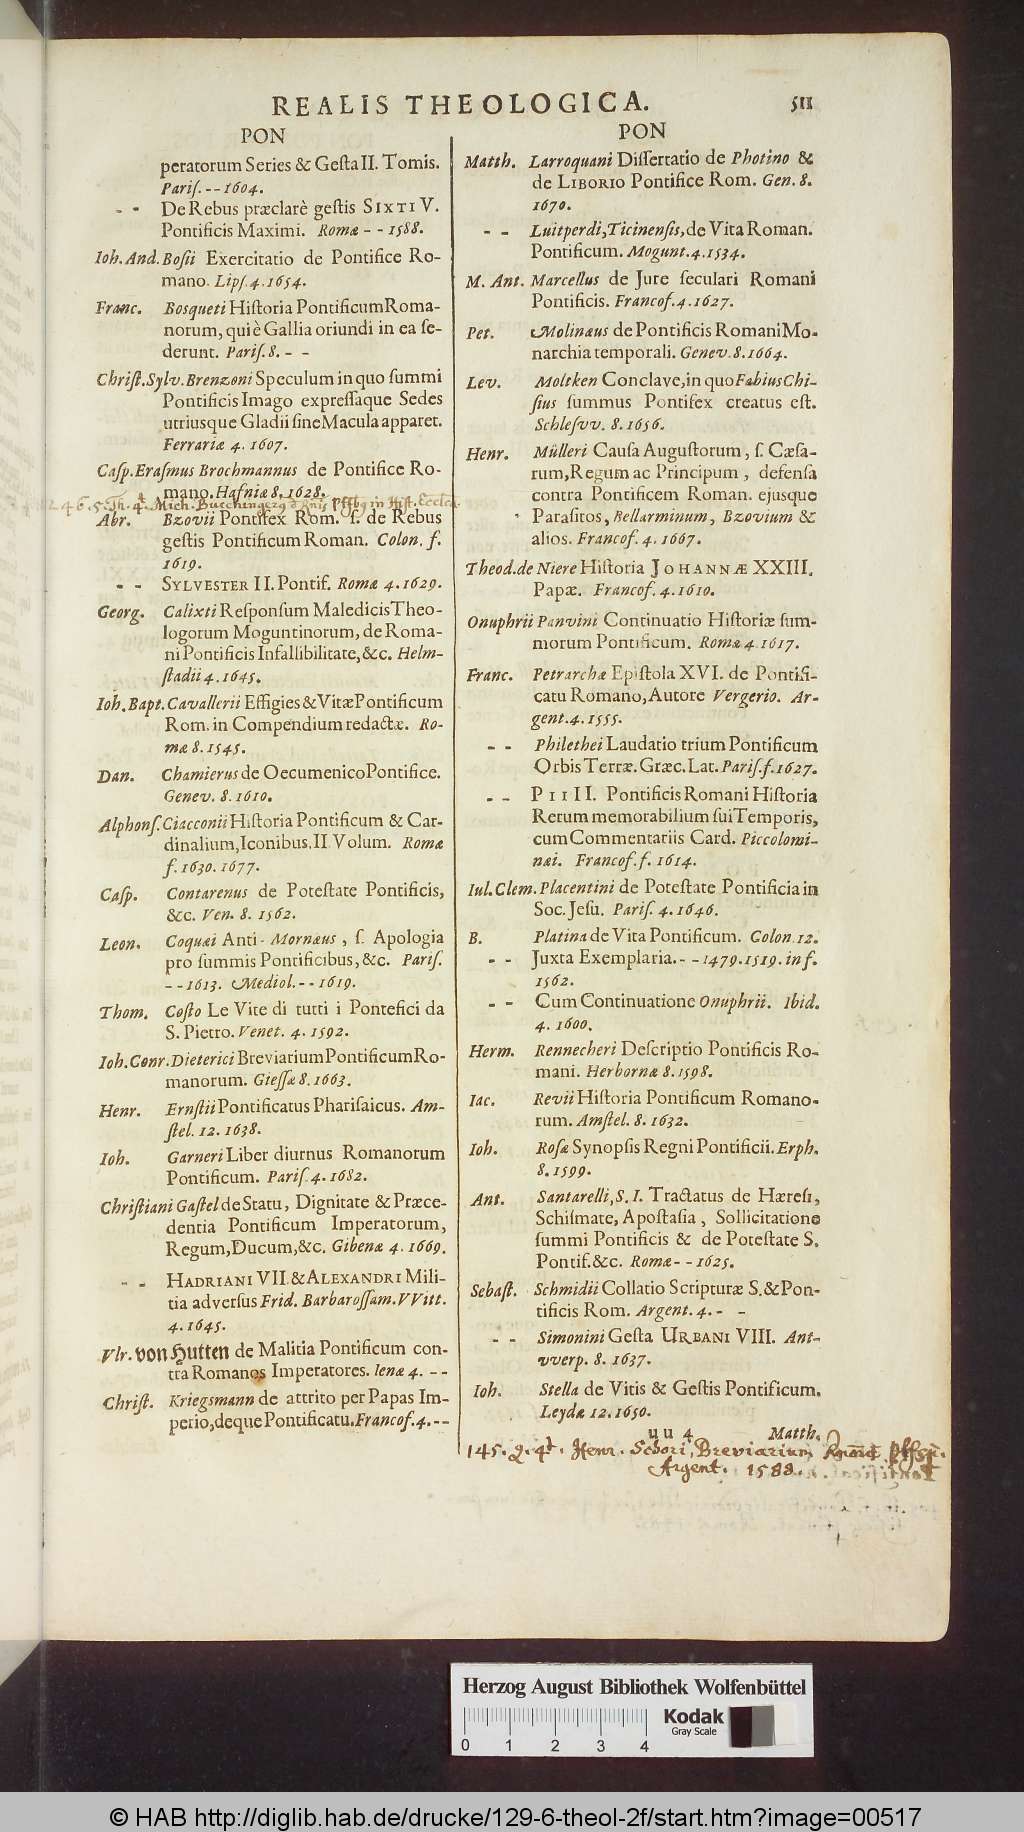 REALIS THEOLOGICA. 511
PON
peratorum Series & Gesta II. Tomis.
Paris. -- 1604.
- - De Rebus præclarè gestis SIXTI V.
Pontificis Maximi. Romæ - - 1588.
Ioh. And. Bosii Exercitatio de Pontifice Ro-
mano. Lips. 4. 1654.
Franc. Bosqueti Historia Pontificum Roma-
norum, qui è Gallia oriundi in ea se-
derunt. Paris. 8. - -
Christ. Sylv. Brenzoni Speculum in quo summi
Pontificis Imago expressaque Sedes
utriusque Gladii sine Macula apparet.
Ferrariæ 4. 1607.
Casp. Erasmus Brochmannus de Pontifice Ro-
mano. Hafniæ 8. 1628.
246.5. Th. 4t. Mich. Buechingerg in Hist. Eccles.
Abr. Bzovii Pontifex Rom. s. de Rebus
gestis Pontificum Roman. Colon. f.
1619.
- - SYLVESTER II. Pontif. Romæ 4. 1629.
Georg. Calixti Responsum Maledicis Theo-
logorum Moguntinorum, de Roma-
ni Pontificis Infallibilitate, &c. Helm-
stadii 4. 1645.
Ioh. Bapt. Cavallerii Effigies & Vitæ Pontificum
Rom. in Compendium redactæ. Ro-
mæ 8. 1545.
Dan. Chamierus de Oecumenico Pontifice.
Genev. 8. 1610.
Alphons. Ciacconii Historia Pontificum & Car-
dinalium, Iconibus, II Volum. Romæ
f. 1630. 1677.
Casp. Contarenus de Potestate Pontificis,
&c. Ven. 8. 1562.
Leon. Coquæi Anti-Mornæus, s. Apologia
pro summis Pontificibus, &c. Paris.
-- 1613. Mediol. -- 1619.
Thom. Costo Le Vite di tutti i Pontefici da
S. Pietro. Venet. 4. 1592.
Ioh. Conr. Dieterici Breviarium Pontificum Ro-
manorum. Giessæ 8. 1663.
Henr. Ernstii Pontificatus Pharisaicus. Am-
stel. 12. 1638.
Ioh. Garneri Liber diurnus Romanorum
Pontificum. Paris. 4. 1682.
Christiani Gastel de Statu, Dignitate & Præce-
dentia Pontificum Imperatorum,
Regum, Ducum, &c. Gibenæ 4. 1669.
- - HADRIANI VII. & ALEXANDRI Mili-
tia adversus Frid. Barbarossam. VVitt.
4. 1645.
Vlr. von Hutten de Malitia Pontificum con-
tra Romanos Imperatores. Ienæ 4. --
Christ. Kriegsmann de attrito per Papas Im-
perio, deque Pontificatu. Francof. 4. --
PON
Matth. Larroquani Dissertatio de Photino &
de LIBORIO Pontifice Rom. Gen. 8.
1670.
- - Luitperdi, Ticinensis, de Vita Roman.
Pontificum. Mogunt. 4. 1534.
M. Ant. Marcellus de Jure seculari Romani
Pontificis. Francof. 4. 1627.
Pet. Molinæus de Pontificis Romani Mo-
narchia temporali. Genev. 8. 1664.
Lev. Moltken Conclave, in quo Fabius Chi-
sius summus Pontifex creatus est.
Schlesvv. 8. 1656.
Henr. Mülleri Causa Augustorum, s. Cæsa-
rum, Regum ac Principum, defensa
contra Pontificem Roman. ejusque
Parasitos, Bellarminum, Bzovium &
alios. Francof. 4. 1667.
Theod. de Niere Historia JOHANNÆ XXIII.
Papæ. Francof. 4. 1610.
Onuphrii Panvini Continuatio Historiæ sum-
morum Pontificum. Romæ 4. 1617.
Franc. Petrarchæ Epistola XVI. de Pontifi-
catu Romano, Autore Vergerio. Ar-
gent. 4. 1555.
- - Philethei Laudatio trium Pontificum
Orbis Terræ. Græc. Lat. Paris. f. 1627.
- - PII II. Pontificis Romani Historia
Rerum memorabilium sui Temporis,
cum Commentariis Card. Piccolomi-
næi. Francof. f. 1614.
Iul. Clem. Placentini de Potestate Pontificia in
Soc. Jesu. Paris. 4. 1646.
B. Platina de Vita Pontificum. Colon. 12.
- - Juxta Exemplaria. - - 1479. 1519. in f.
1562.
- - Cum Continuatione Onuphrii. Ibid.
4. 1600.
Herm. Rennecheri Descriptio Pontificis Ro-
mani. Herbornæ 8. 1598.
Iac. Revii Historia Pontificum Romano-
rum. Amstel. 8. 1632.
Ioh. Rosæ Synopsis Regni Pontificii. Erph.
8. 1599.
Ant. Santarelli, S. I. Tractatus de Hæresi,
Schismate, Apostasia, Sollicitatione
summi Pontificis & de Potestate S.
Pontif. &c. Romæ - - 1625.
Sebast. Schmidii Collatio Scripturæ S. & Pon-
tificis Rom. Argent. 4. - -
- - Simonini Gesta URBANI VIII. Ant-
vverp. 8. 1637.
Ioh. Stella de Vitis & Gestis Pontificum.
Leydæ 12. 1650.
uu 4 Matth.
145. Q. 4t. Henr. Schori, Breviarium
Argent. 1588.
Herzog August Bibliothek Wolfenbüttel
Kodak
Gray Scale
0 1 2 3 4
© HAB http://diglib.hab.de/drucke/129-6-theol-2f/start.htm?image=00517